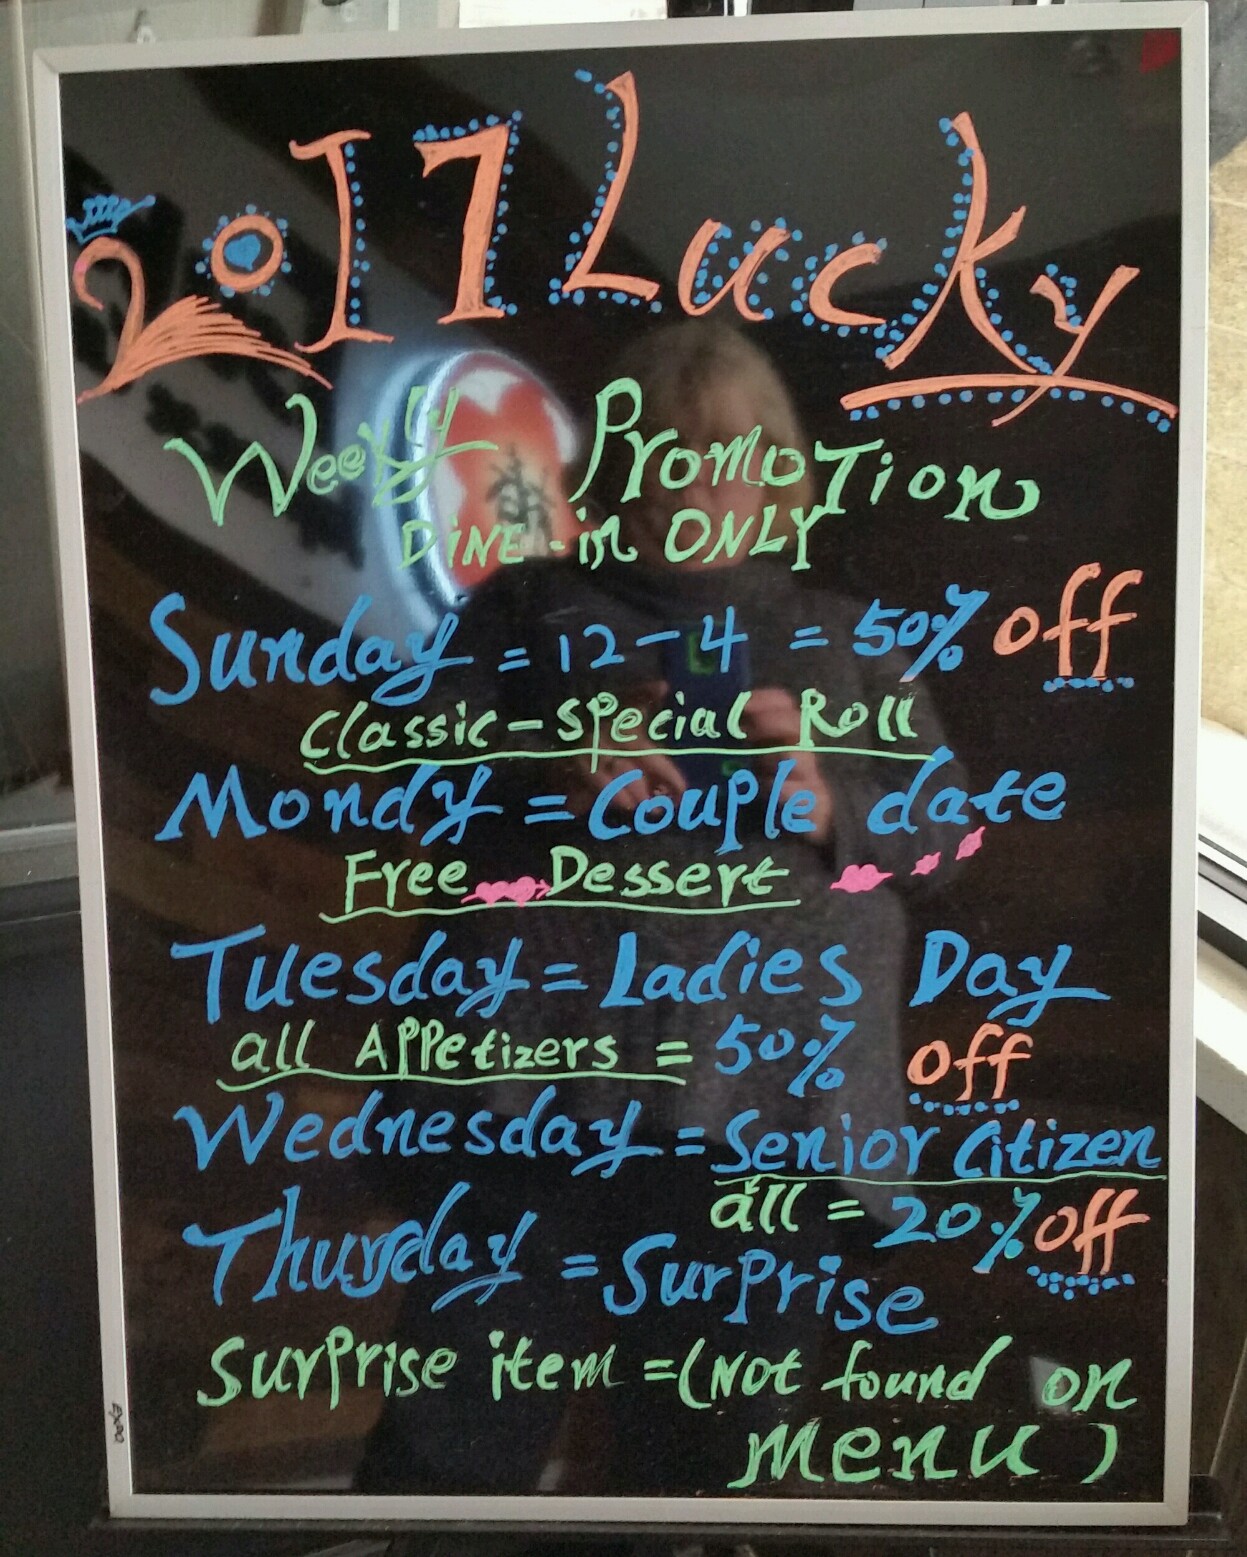 2017 Lucky
Weekly Promotion
DiNE-in ONLY
Sunday = 12-4 = 50% off
Classic-Special Roll
Mondy = Couple date
Free Dessert
Tuesday = Ladies Day
all Appetizers = 50% off
Wednesday = Senior Citizen
all = 20% off
Thursday = Surprise
Surprise item = (Not found on
menu)